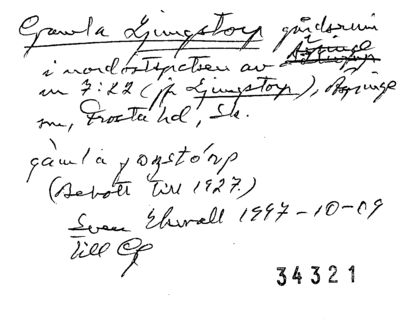 Gamla Ljungstorp gårdsruin
i nordostspetsen av
m 7:22 (jfr Ljungstorp), Äspinge
sn, Frosta hd, Sk.
gàmla jɔŋstórp
(Bebott till 1927.)
Sven Ekvall 1997-10-09
till
34321